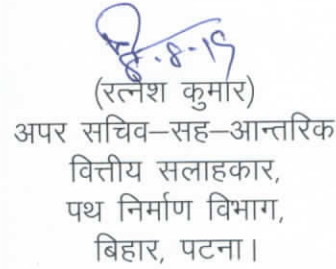 8-19
(रत्नेश कुमार)
अपर सचिव–सह–आन्तरिक
वित्तीय सलाहकार,
पथ निर्माण विभाग,
बिहार, पटना।